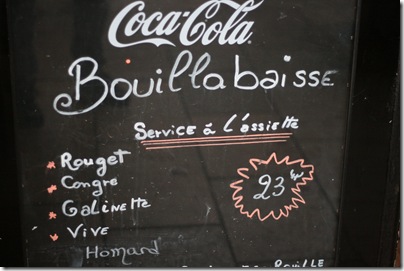 Coca-Cola
Bouillabaisse
Service à l'assiette
Rouget
Congre
Galinette
Vive
Homard
23
Rouille